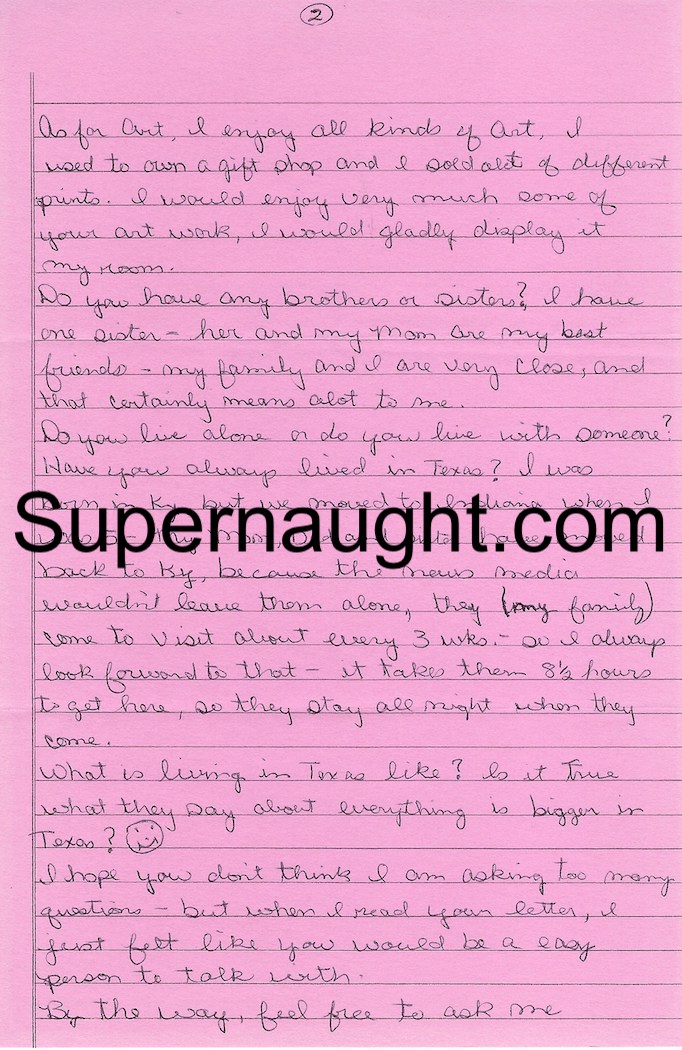 2
As for Art, I enjoy all kinds of Art, I
used to own a gift shop and I sold alot of different
prints. I would enjoy very much some of
your art work, I would gladly display it
my room.
Do you have any brothers or sisters? I have
one sister - her and my Mom are my best
friends - my family and I are very close, and
that certainly means alot to me.
Do you live alone or do you live with someone?
Have you always lived in Texas? I was
born in Ky, but we moved to Indiana when I
Supernaught.com
was Mom, and have moved
back to Ky, because the news media
wouldn't leave them alone, they (my family)
come to visit about every 3 wks. - so I always
look forward to that - it takes them 8½ hours
to get here, so they stay all night when they
come.
What is living in Texas like? Is it True
what they say about everything is bigger in
Texas? ☺
I hope you don't think I am asking too many
questions - but when I read your letter, I
just felt like you would be a easy
person to talk with.
By the way, feel free to ask me